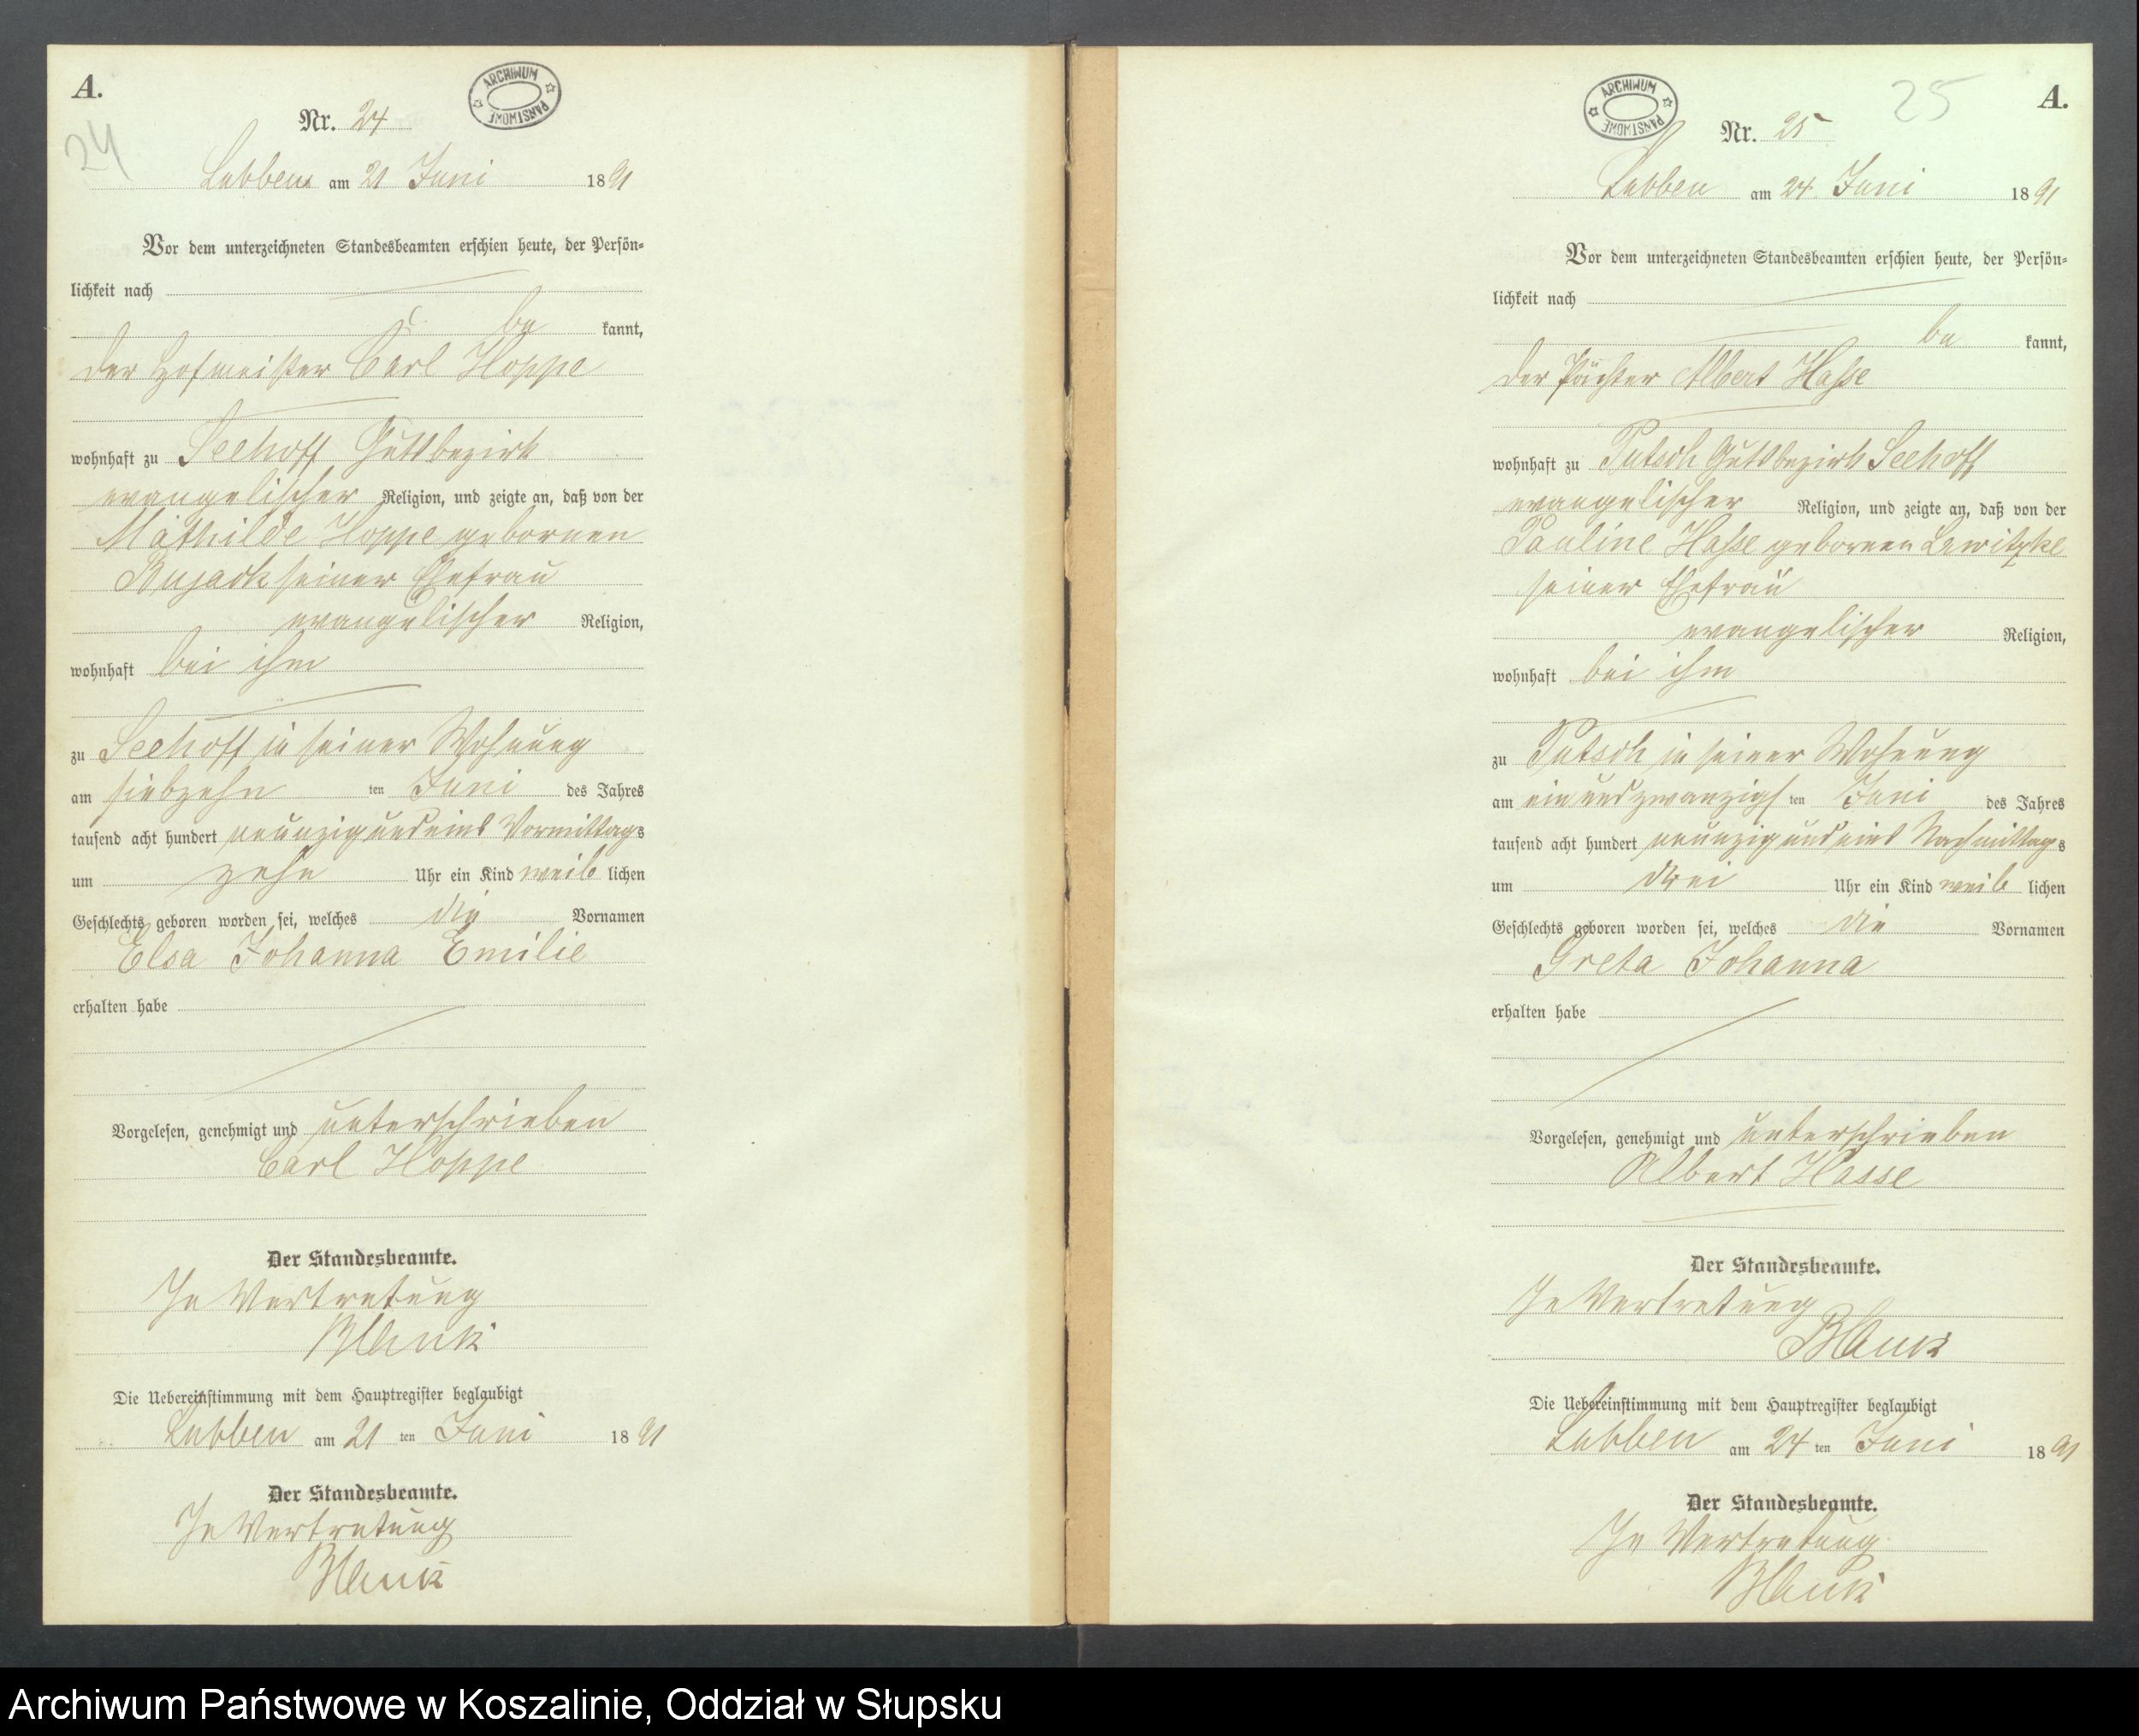 A.
24
ARCHIWUM PAŃSTWOWE
Nr. 24
Lubben am 21 Juni 1891
Vor dem unterzeichneten Standesbeamten erschien heute, der Persön-
lichkeit nach
be kannt,
der Hofmeister Carl Hoppe
wohnhaft zu Seehoff Gutsbezirk
evangelischer Religion, und zeigte an, daß von der
Mathilde Hoppe gebornen
Bujack seiner Ehefrau
evangelischer Religion,
wohnhaft bei ihm
zu Seehoff in seiner Wohnung
am siebzehn ten Juni des Jahres
tausend acht hundert neunzig und eins Vormittags
um zehn Uhr ein Kind weib lichen
Geschlechts geboren worden sei, welches die Vornamen
Elsa Johanna Emilie
erhalten habe
Vorgelesen, genehmigt und unterschrieben
Carl Hoppe
Der Standesbeamte.
In Vertretung
Blank
Die Uebereinstimmung mit dem Hauptregister beglaubigt
Lubben am 21 ten Juni 1891
Der Standesbeamte.
In Vertretung
Blank
25
A.
ARCHIWUM PAŃSTWOWE
Nr. 25
Lubben am 24. Juni 1891
Vor dem unterzeichneten Standesbeamten erschien heute, der Persön-
lichkeit nach
be kannt,
der Pächter Albert Hasse
wohnhaft zu Putsch Gutsbezirk Seehoff
evangelischer Religion, und zeigte an, daß von der
Pauline Hasse gebornen Lewitzke
seiner Ehefrau
evangelischer Religion,
wohnhaft bei ihm
zu Putsch in seiner Wohnung
am ein und zwanzigs ten Juni des Jahres
tausend acht hundert neunzig und eins Nachmittags
um drei Uhr ein Kind weib lichen
Geschlechts geboren worden sei, welches die Vornamen
Greta Johanna
erhalten habe
Vorgelesen, genehmigt und unterschrieben
Albert Hasse
Der Standesbeamte.
In Vertretung
Blank
Die Uebereinstimmung mit dem Hauptregister beglaubigt
Lubben am 24 ten Juni 1891
Der Standesbeamte.
In Vertretung
Blank
Archiwum Państwowe w Koszalinie, Oddział w Słupsku